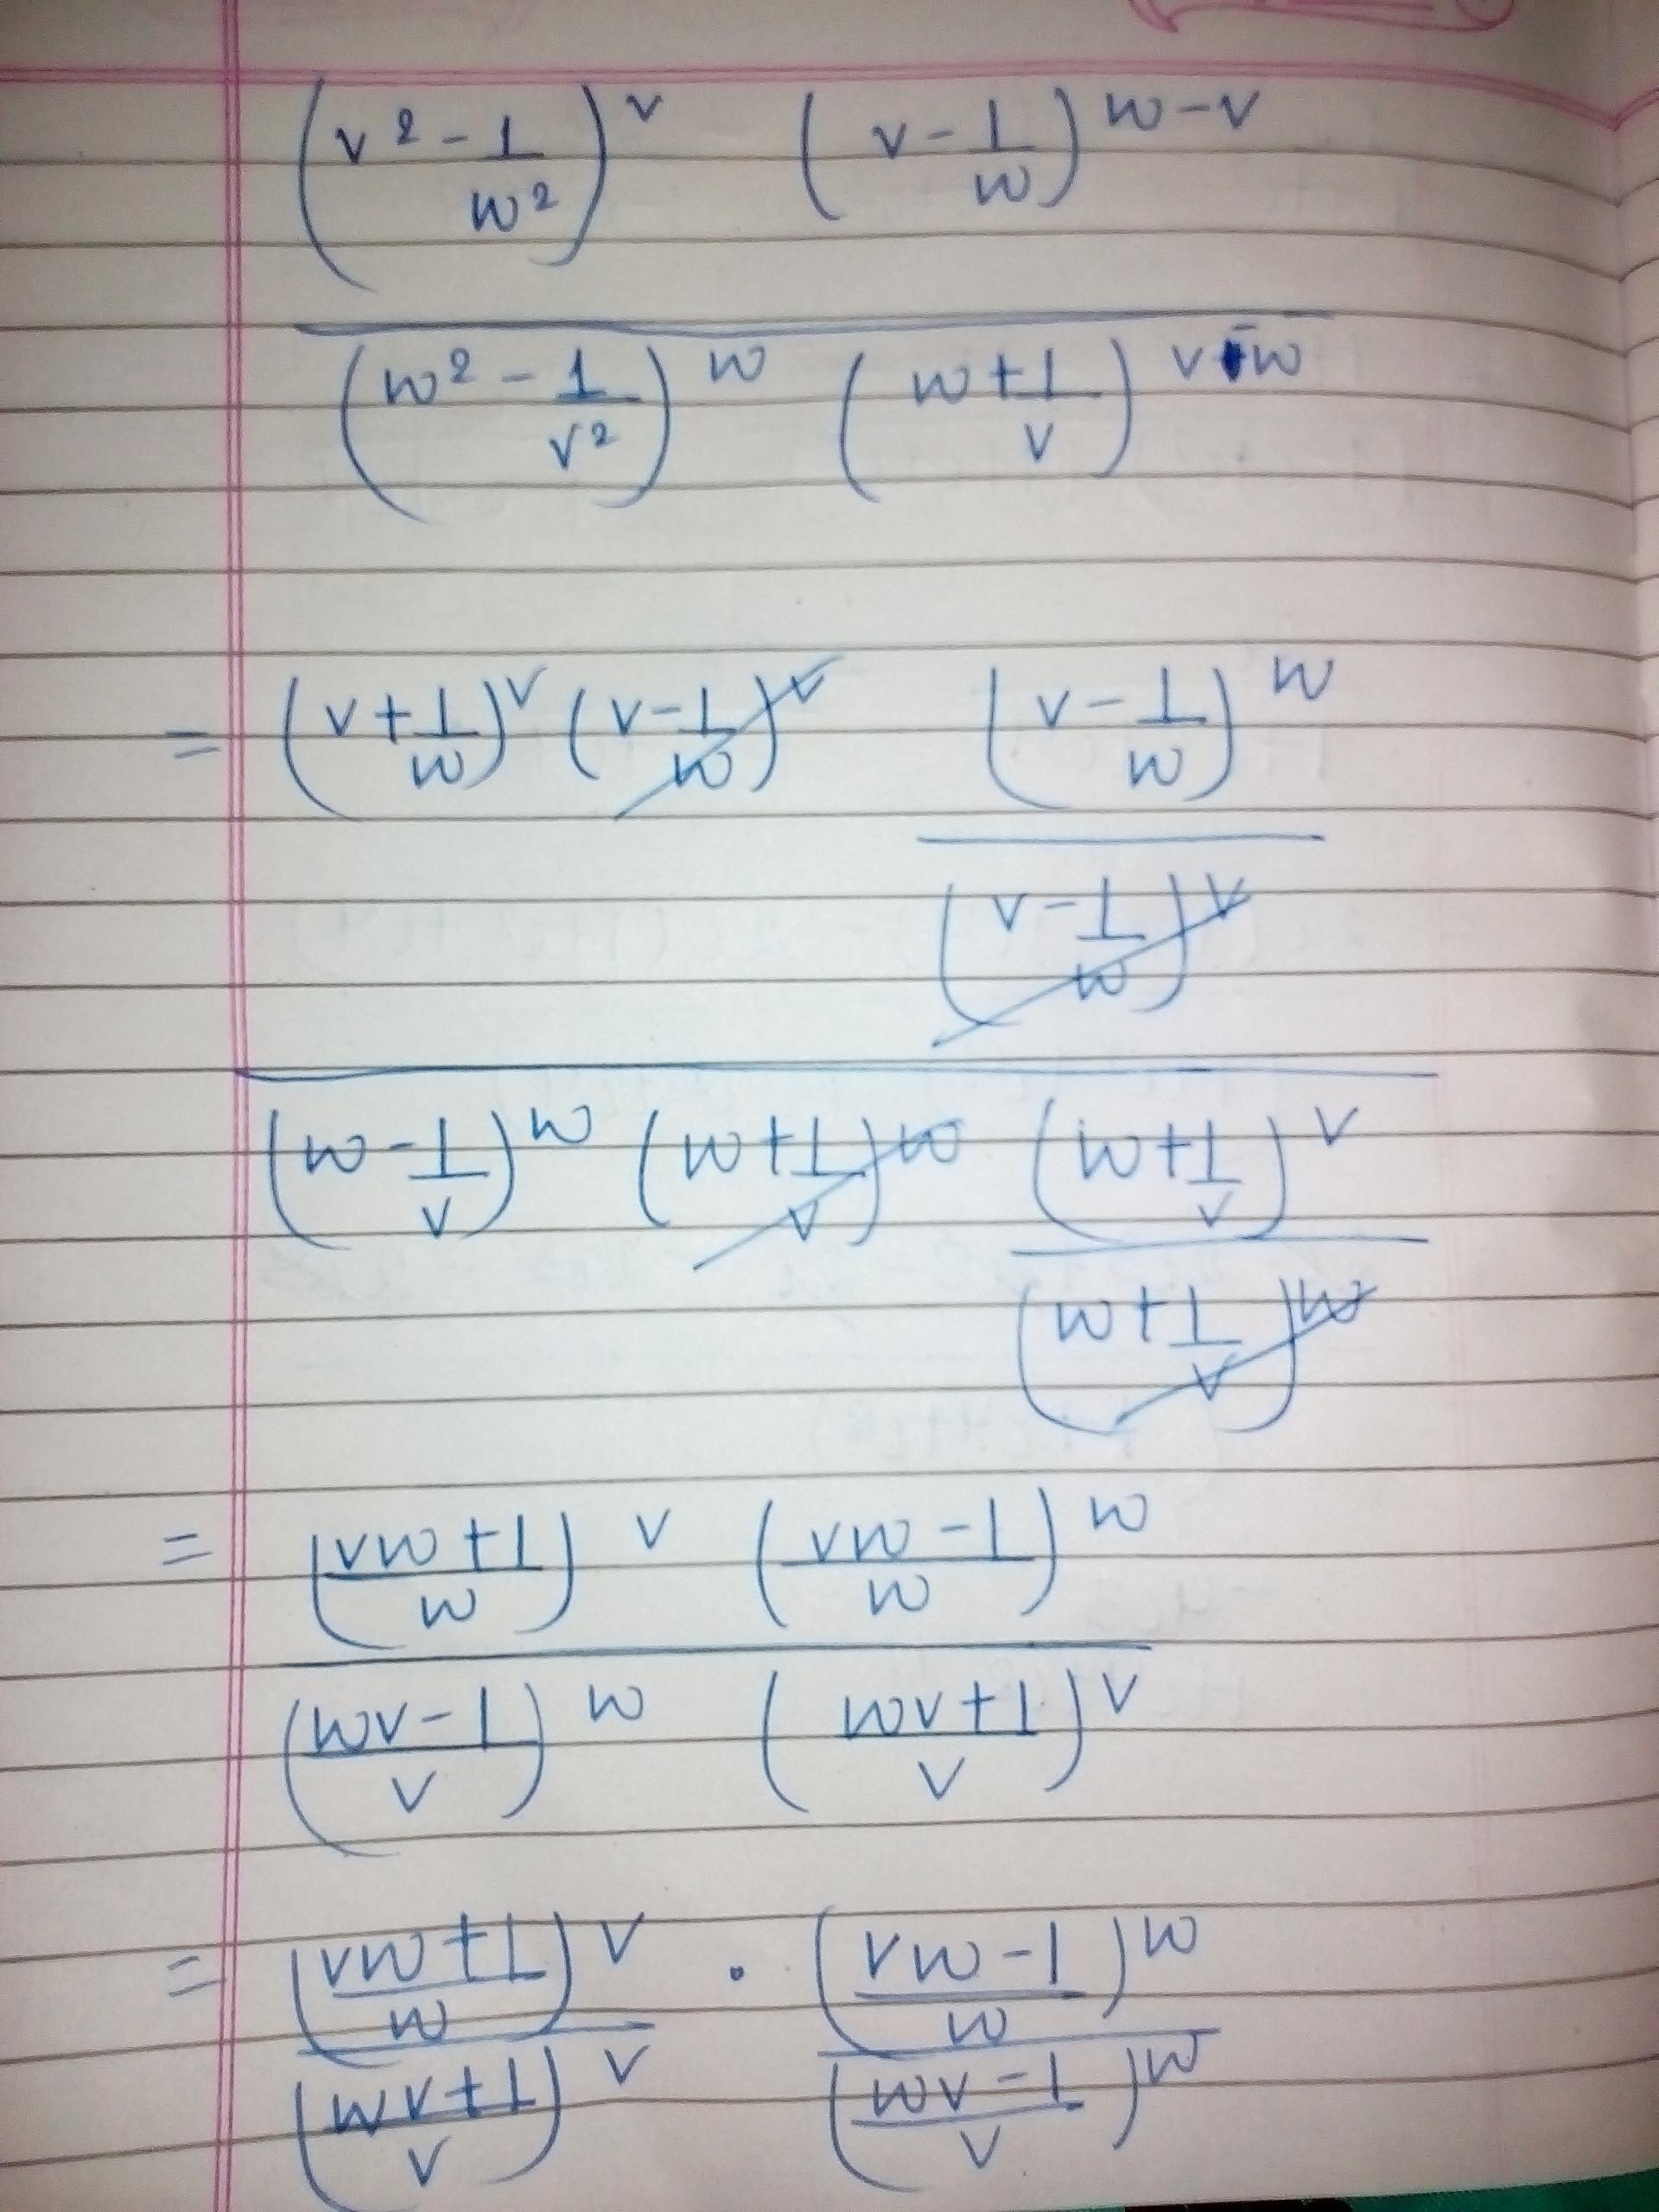 (v² - 1/w²)^v (v - 1/w)^(w-v)
(w² - 1/v²)^w (w + 1/v)^(v-w)
= (v + 1/w)^v (v - 1/w)^v (v - 1/w)^w
(v - 1/w)^v
(w - 1/v)^w (w + 1/v)^w (w + 1/v)^v
(w + 1/v)^w
= ((vw + 1)/w)^v ((vw - 1)/w)^w
((wv - 1)/v)^w ((wv + 1)/v)^v
= ((vw + 1)/w)^v . ((vw - 1)/w)^w
((wv + 1)/v)^v ((wv - 1)/v)^w